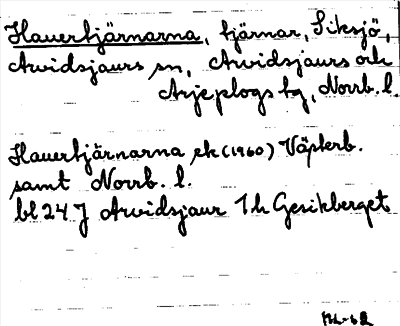 Hauertjärnarna, tjärnar, Siksjö,
Arvidsjaurs sn, Arvidsjaurs och
Arjeplogs tg, Norrb. l.
Hauertjärnarna, ek (1960) Västerb.
samt Norrb. l.
bl 24 J Arvidsjaur 1h Gesikberget